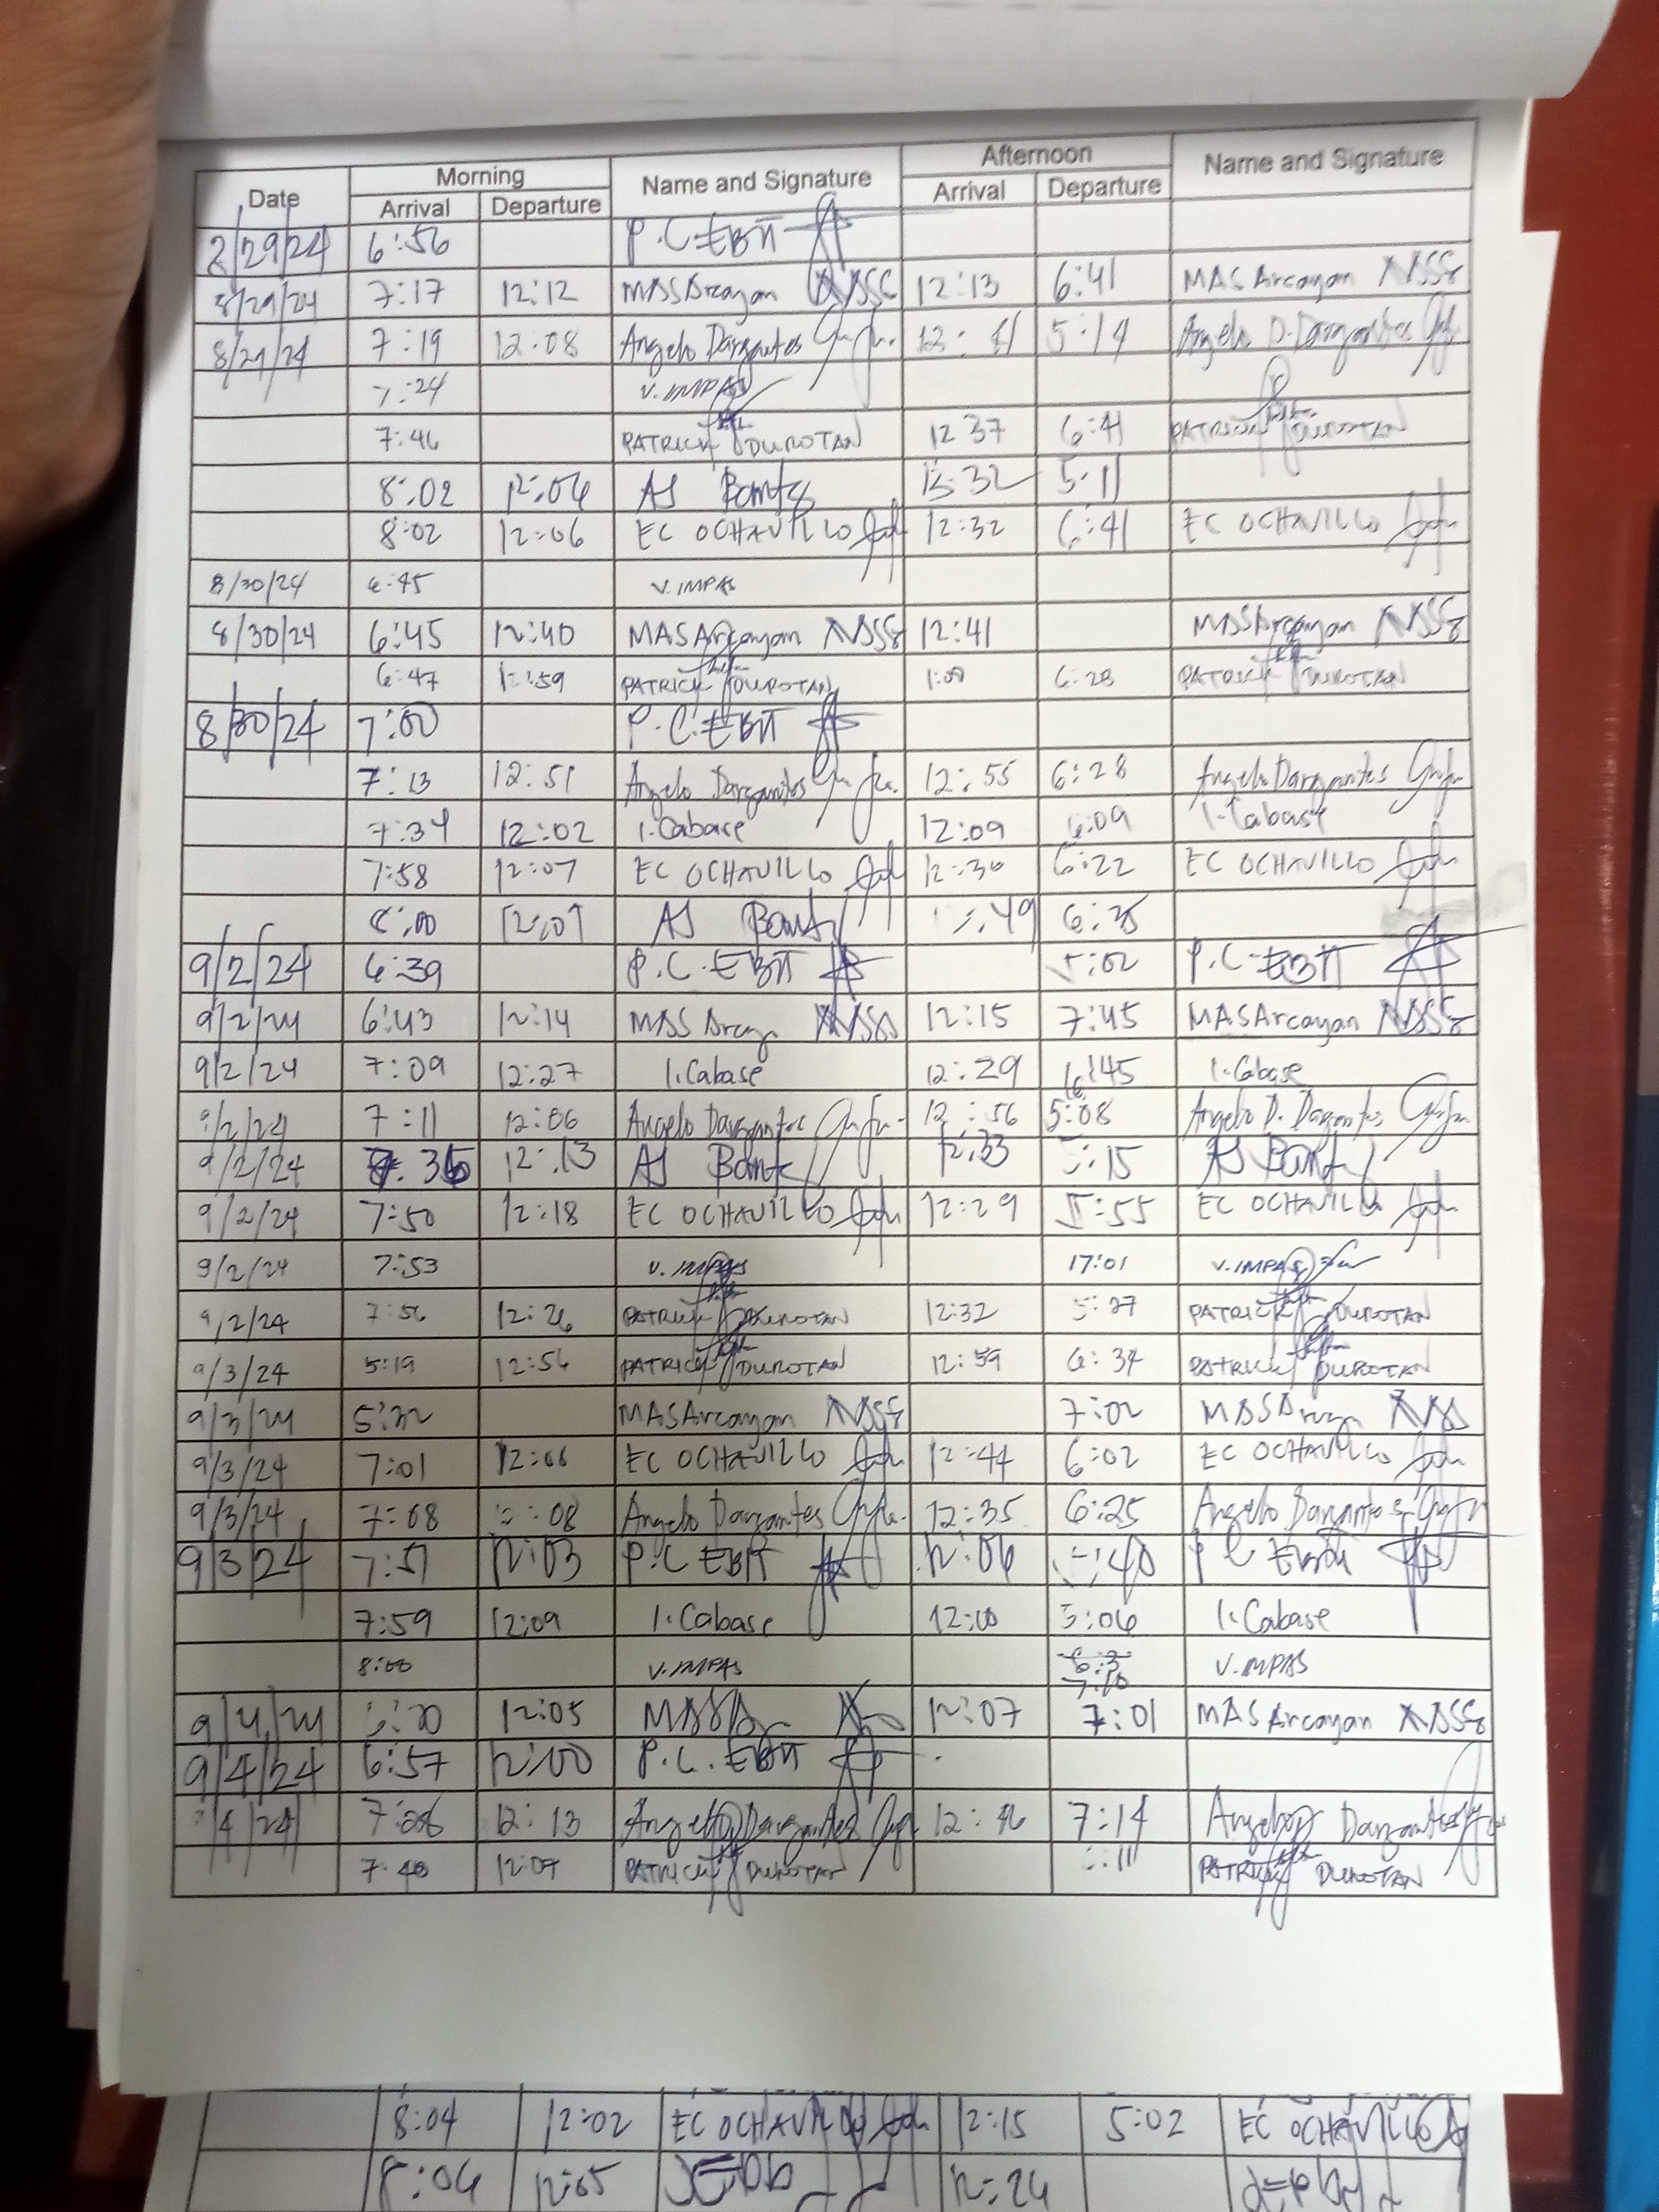 Date Morning Name and Signature Afternoon Name and Signature
Arrival Departure Arrival Departure
2/29/24 6:56 P.C. EBIT
8/29/24 7:17 12:12 MAS Arcayan 12:13 6:41 MAS Arcayan
8/29/24 7:19 12:08 Angelo Dargantes 5:14 Angelo D. Dargantes
7:24 V. IMPAS
7:46 PATRICK DUROTAN 12 37 6:41 PATRICK DUROTAN
8:02 12:06 AJ 5:11
8:02 12:06 EC OCHAVILLO 12:32 6:41 EC OCHAVILLO
8/30/24 6:45 V. IMPAS
8/30/24 6:45 12:40 MAS Arcayan 12:41 MAS Arcayan
6:47 12:59 PATRICK DUROTAN 1:00 6:28 PATRICK DUROTAN
8/30/24 7:00 P.C. EBIT
7:13 12:51 Angelo Dargantes 12:55 6:28 Angelo Dargantes
7:34 12:02 I. Cabase 12:09 6:09 I. Cabase
7:58 12:07 EC OCHAVILLO 12:30 6:22 EC OCHAVILLO
8:00 12:07 AJ
9/2/24 6:39 P.C. EBIT 5:02 P.C. EBIT
9/2/24 6:43 12:14 MAS 12:15 7:45 MAS Arcayan
9/2/24 7:09 12:27 I. Cabase 12:29 6:45 I. Cabase
9/2/24 7:11 12:06 Angelo Dargantes 12:56 5:08 Angelo D. Dargantes
9/2/24 12:13 AJ 12:33 5:15 AJ
9/2/24 7:50 12:18 EC OCHAVILLO 12:29 5:55 EC OCHAVILLO
9/2/24 7:53 V. IMPAS 17:01 V. IMPAS
9/2/24 7:56 12:26 PATRICK DUROTAN 12:32 PATRICK DUROTAN
9/3/24 5:19 12:56 PATRICK DUROTAN 12:59 6:34 PATRICK DUROTAN
9/3/24 5:32 MAS Arcayan 7:02 MAS
9/3/24 7:01 12:06 EC OCHAVILLO 12:44 6:02 EC OCHAVILLO
9/3/24 7:08 Angelo Dargantes 12:35 6:25 Angelo Dargantes
9/3/24 7:51 12:03 P.C EBIT 12:06 5:40 P C
7:59 12:09 I. Cabase 12:10 5:06 I. Cabase
8:00 V. IMPAS V. IMPAS
9/4/24 12:05 12:07 7:01 MAS Arcayan
9/4/24 6:57 12:00 P.C. EBIT
9/4/24 12:13 Angelo Dargantes 7:14 Angelo Dargantes
7:40 12:07 PATRICK DUROTAN PATRICK DUROTAN
8:04 12:02 EC OCHAVILLO 12:15 5:02 EC OCHAVILLO
8:06 12:05 12:26